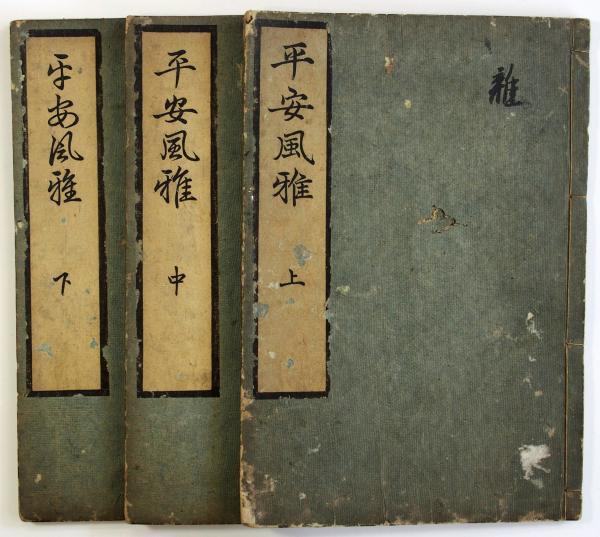 雑
平安風雅 上
平安風雅 中
平安風雅 下